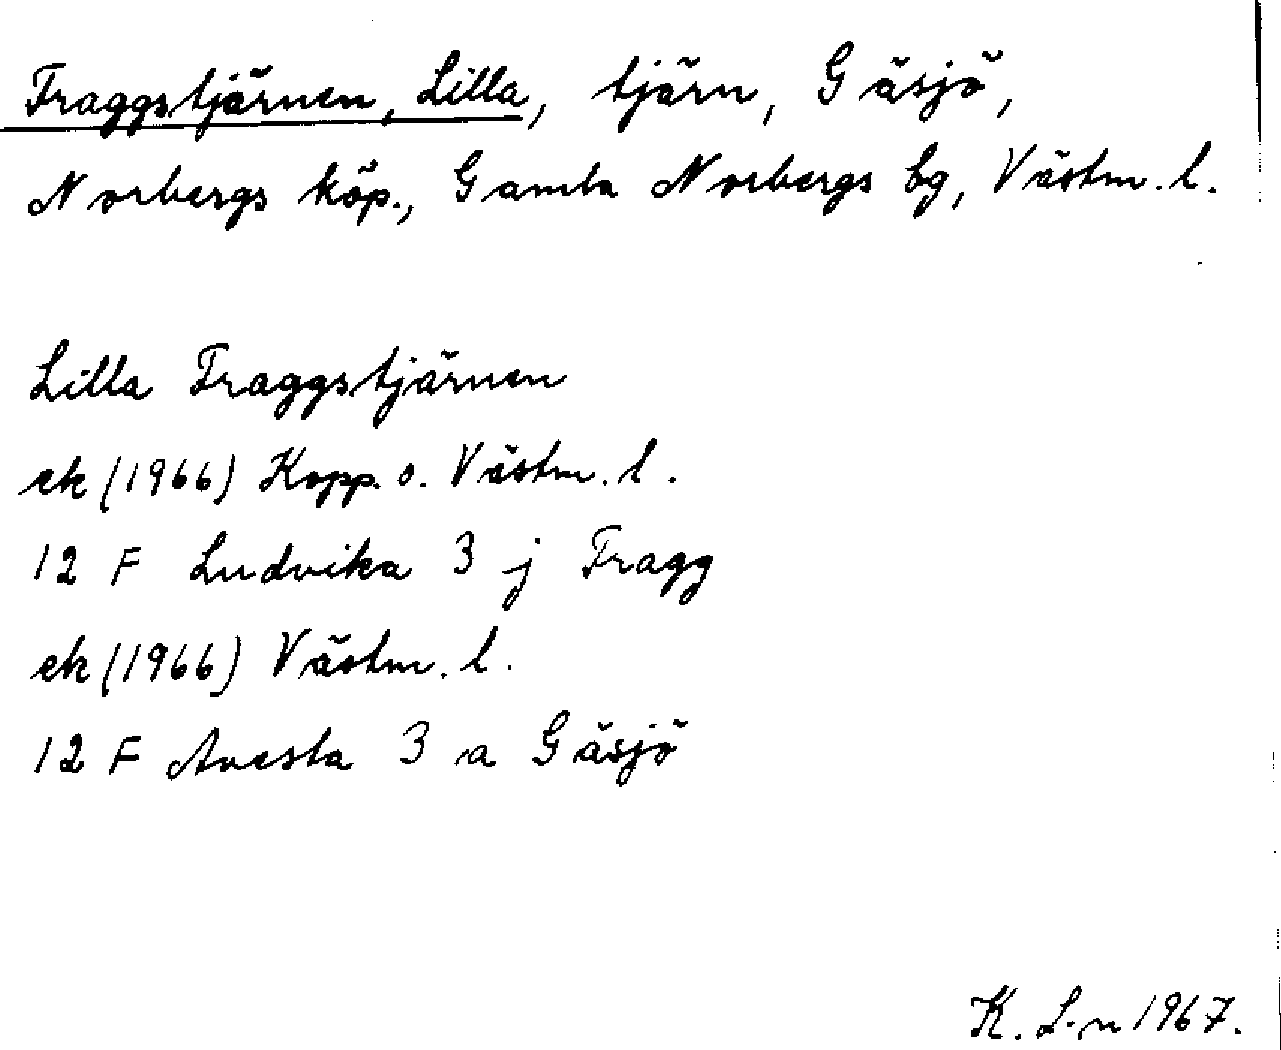 Fraggstjärnen, Lilla, tjärn, Gäsjö,
Norbergs köp., Gamla Norbergs bg, Västm. l.
Lilla Fraggstjärnen
ek (1966) Kopp. o. Västm. l.
12 F Ludvika 3 j Fragg
ek (1966) Västm. l.
12 F Avesta 3 a Gäsjö
K. L-n 1967.